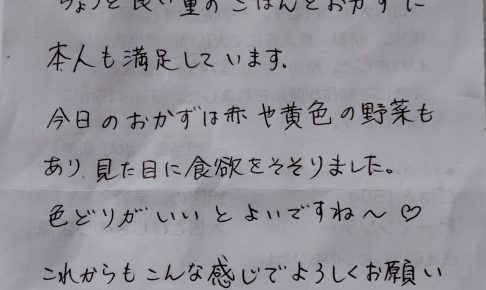 ちょうど良い量のごはんとおかずに
本人も満足しています。
今日のおかずは赤や黄色の野菜も
あり、見た目に食欲をそそりました。
色どりがいいとよいですね〜♡
これからもこんな感じでよろしくお願い